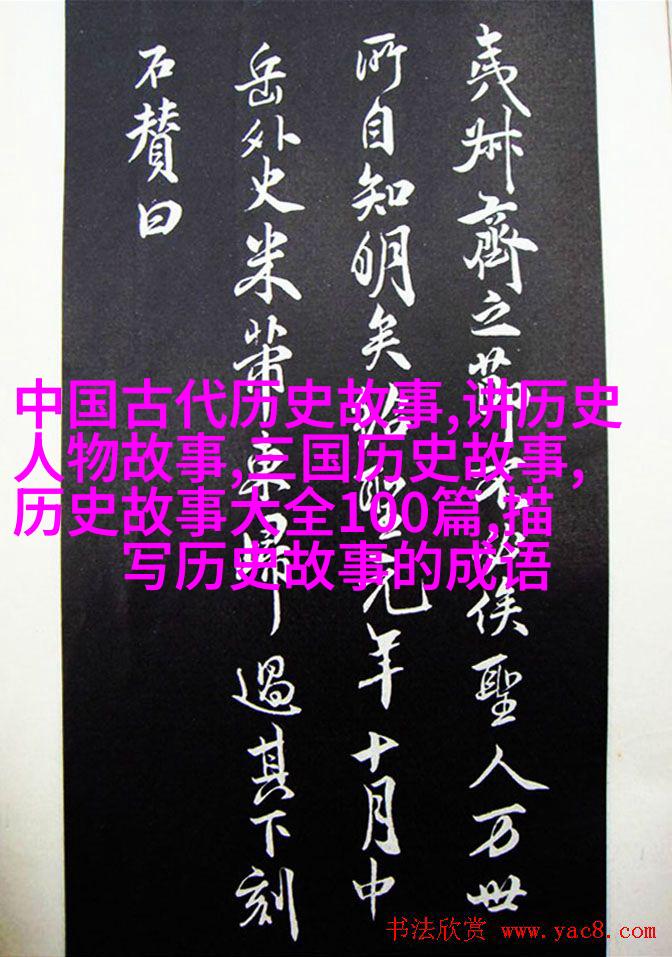 夷叔齊之節不必俟聖人万世
所自知明矣紹聖元年十月中
岳外史米芾東歸過其下刻
石賛曰
中国古代历史故事,讲历史
人物故事,三国历史故事,
历史故事大全100篇,描
写历史故事的成语
书法欣赏 www.yac8.com